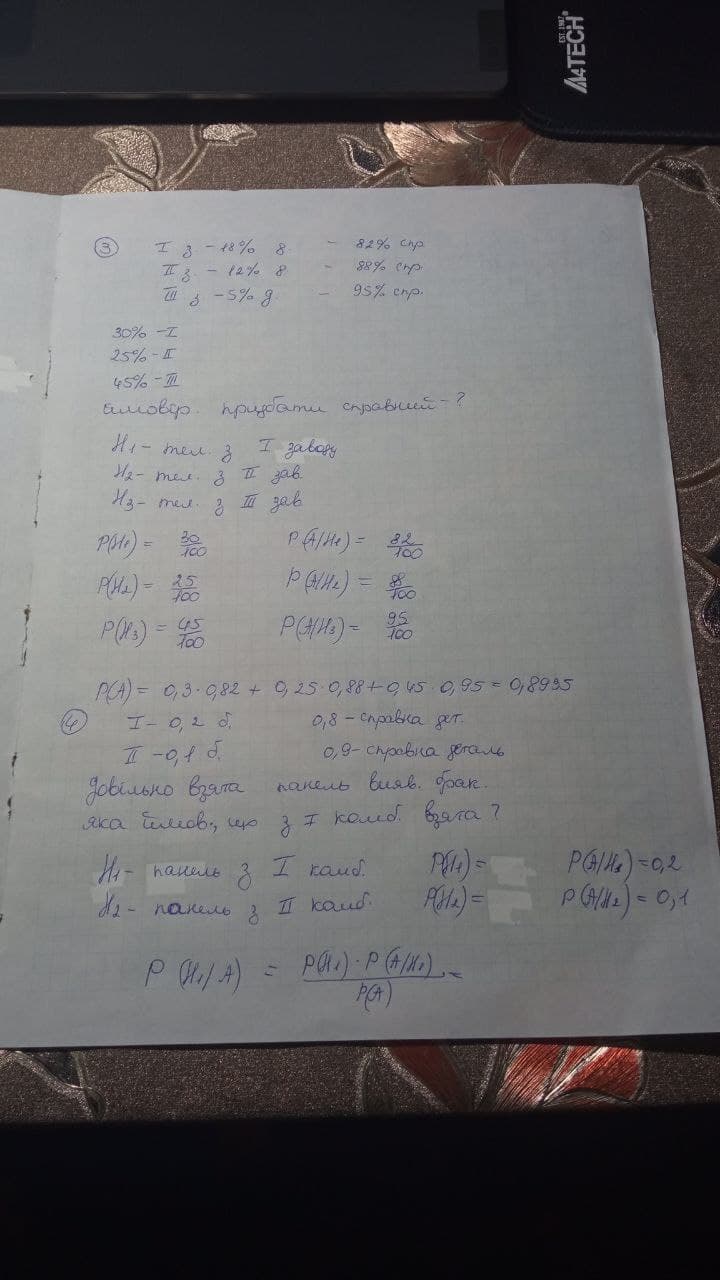 A4TECH
EST. 1987
③ I з. – 18% д. – 82% спр.
II з. – 12% д – 88% спр.
III з – 5% д. – 95% спр.
30% – I
25% – II
45% – III
ймовір. придбати справний – ?
H1 – тел. з I заводу
H2 – тел. з II зав.
H3 – тел. з III зав
P(H1) = 30/100 P(A/H1) = 82/100
P(H2) = 25/100 P(A/H2) = 88/100
P(H3) = 45/100 P(A/H3) = 95/100
P(A) = 0,3 · 0,82 + 0,25 · 0,88 + 0,45 · 0,95 = 0,8935
④ I – 0,2 б. 0,8 – справна дет.
II – 0,1 б. 0,9 – справна деталь
Довільно взята панель вияв. брак.
яка ймов., що з I комб. взята ?
H1 – панель з I комб. P(H1) = P(A/H1) = 0,2
H2 – панель з II комб. P(H2) = P(A/H2) = 0,1
P(H1/A) = P(H1) · P(A/H1) / P(A) =